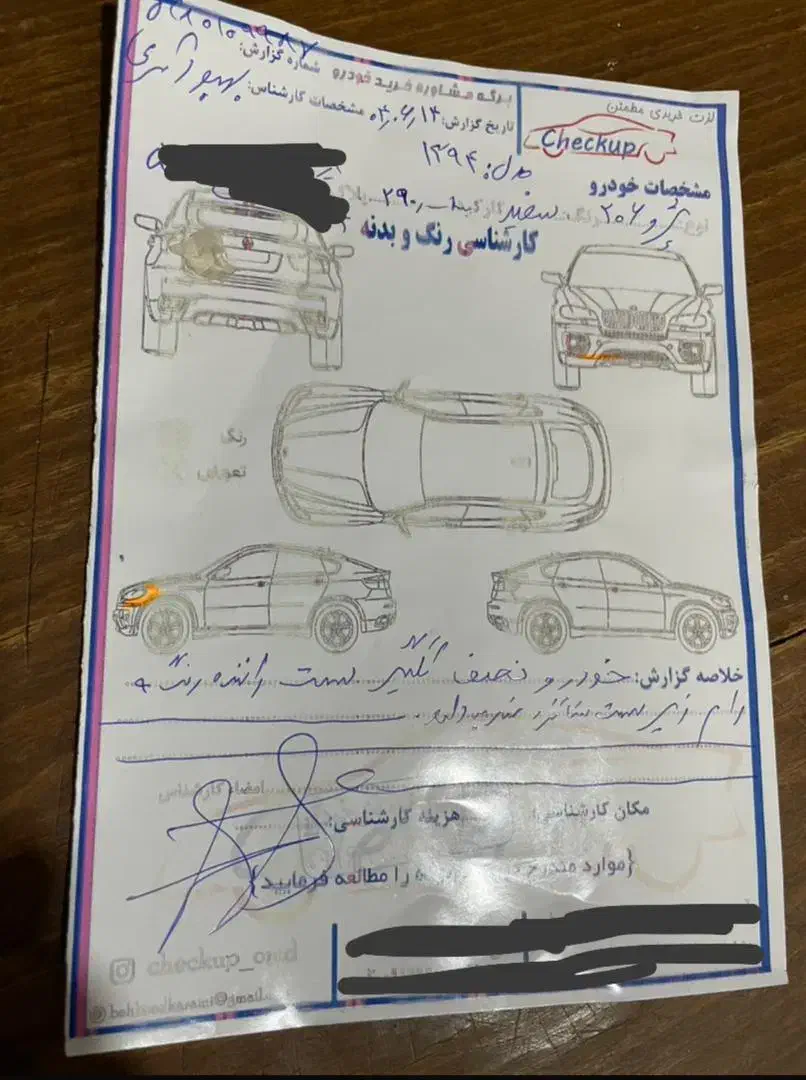 برگه مشاوره خرید خودرو
شماره گزارش:
لذت خریدی مطمئن
تاریخ گزارش: ۰۳٫۰۶٫۱۴ مشخصات کارشناس:
Checkup
مدل: ۱۳۹۴
مشخصات خودرو
پژو ۲۰۶ رنگ: سفید کارکرد: ۲۹۰٫۰۰۰ پلاک
کارشناسی رنگ و بدنه
رنگ
تعویض
خلاصه گزارش: خودرو نصف گلگیر سمت راننده رنگ و
رام زیر سمت شاگرد ضربه دارد.
امضاء کارشناس
مکان کارشناسی: هزینه کارشناسی:
{موارد مندرج را مطالعه فرمایید}
checkup_
@gmail.